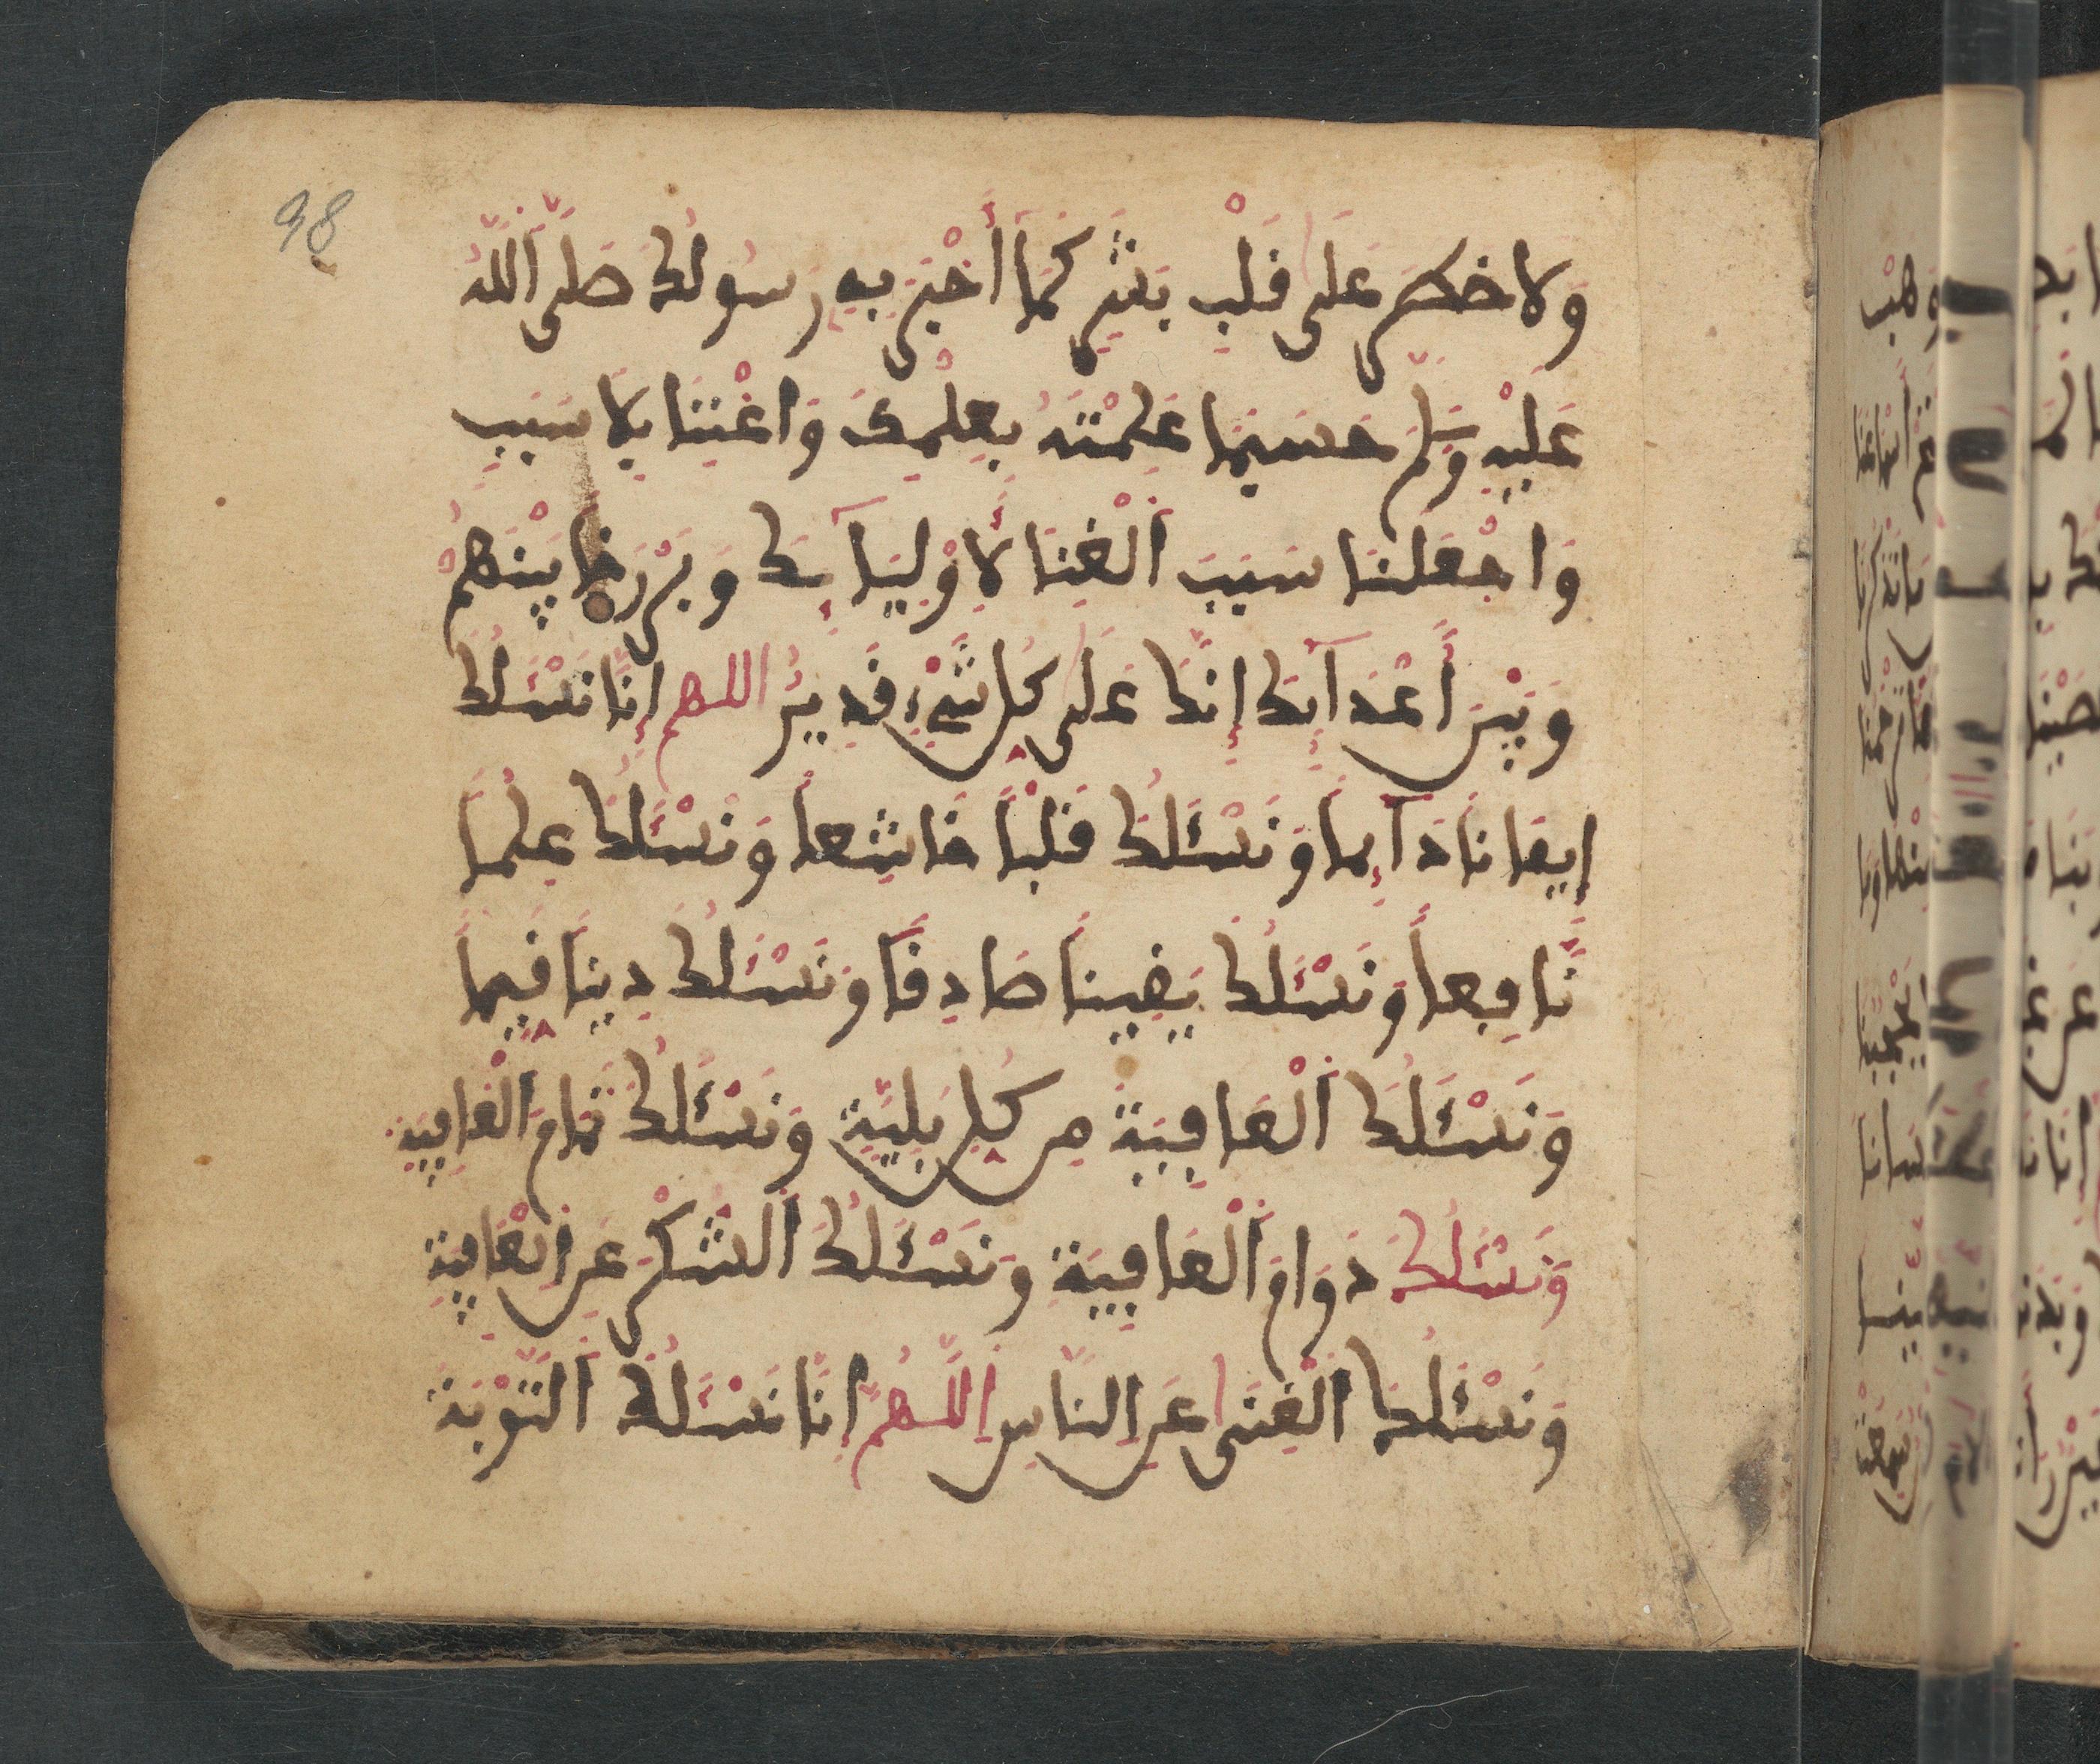 98
وَلاَ خَطَرَ عَلَى قَلْبِ بَشَرٍ كَمَا أَخْبَرَ بِهِ رَسُولُكَ صَلَّى اَللَّهُ
عَلَيْهِ وَسَلَّمَ حَسَبَمَا عَلِمْتَهُ بِعِلْمِكَ وَاغْنِنَا بِلاَ سَبَبٍ
وَاجْعَلْنَا سَبَبَ اَلْغِنَا لِأَوْلِيَآئِكَ وَبَرْزَخاً بَيْنَهُمْ
وَبَيْنَ أَعْدَآئِكَ إِنَّكَ عَلَى كُلِّ شَيْءٍ قَدِيرٌ اللهم إِنَّا نَسْئَلُكَ
إيمَاناً دَآئِماً وَنَسْئَلُكَ قَلْباً خَاشِعاً وَنَسْئَلُكَ عِلْماً
نَّافِعاً وَنَسْئَلُكَ يَقِيناً صَادِقاً وَنَسْئَلُكَ دِيناً قَيِّماً
وَنَسْئَلُكَ اَلْعَافِيَةَ مِن كُلِّ بَلِيَّةٍ وَنَسْئَلُكَ تَمَامَ اَلْعَافِيَةِ
وَنَسْئَلُكَ دَوَامَ اَلْعَافِيَةِ وَنَسْئَلُكَ اَلشُّكْرَ عَنِ الْعَافِيَةِ
وَنَسْئَلُكَ اَلْغِنَى عَنِ النَّاسِ اَللَّهُمَّ إِنَّا نَسْئَلُكَ اَلتَّوْبَةَ